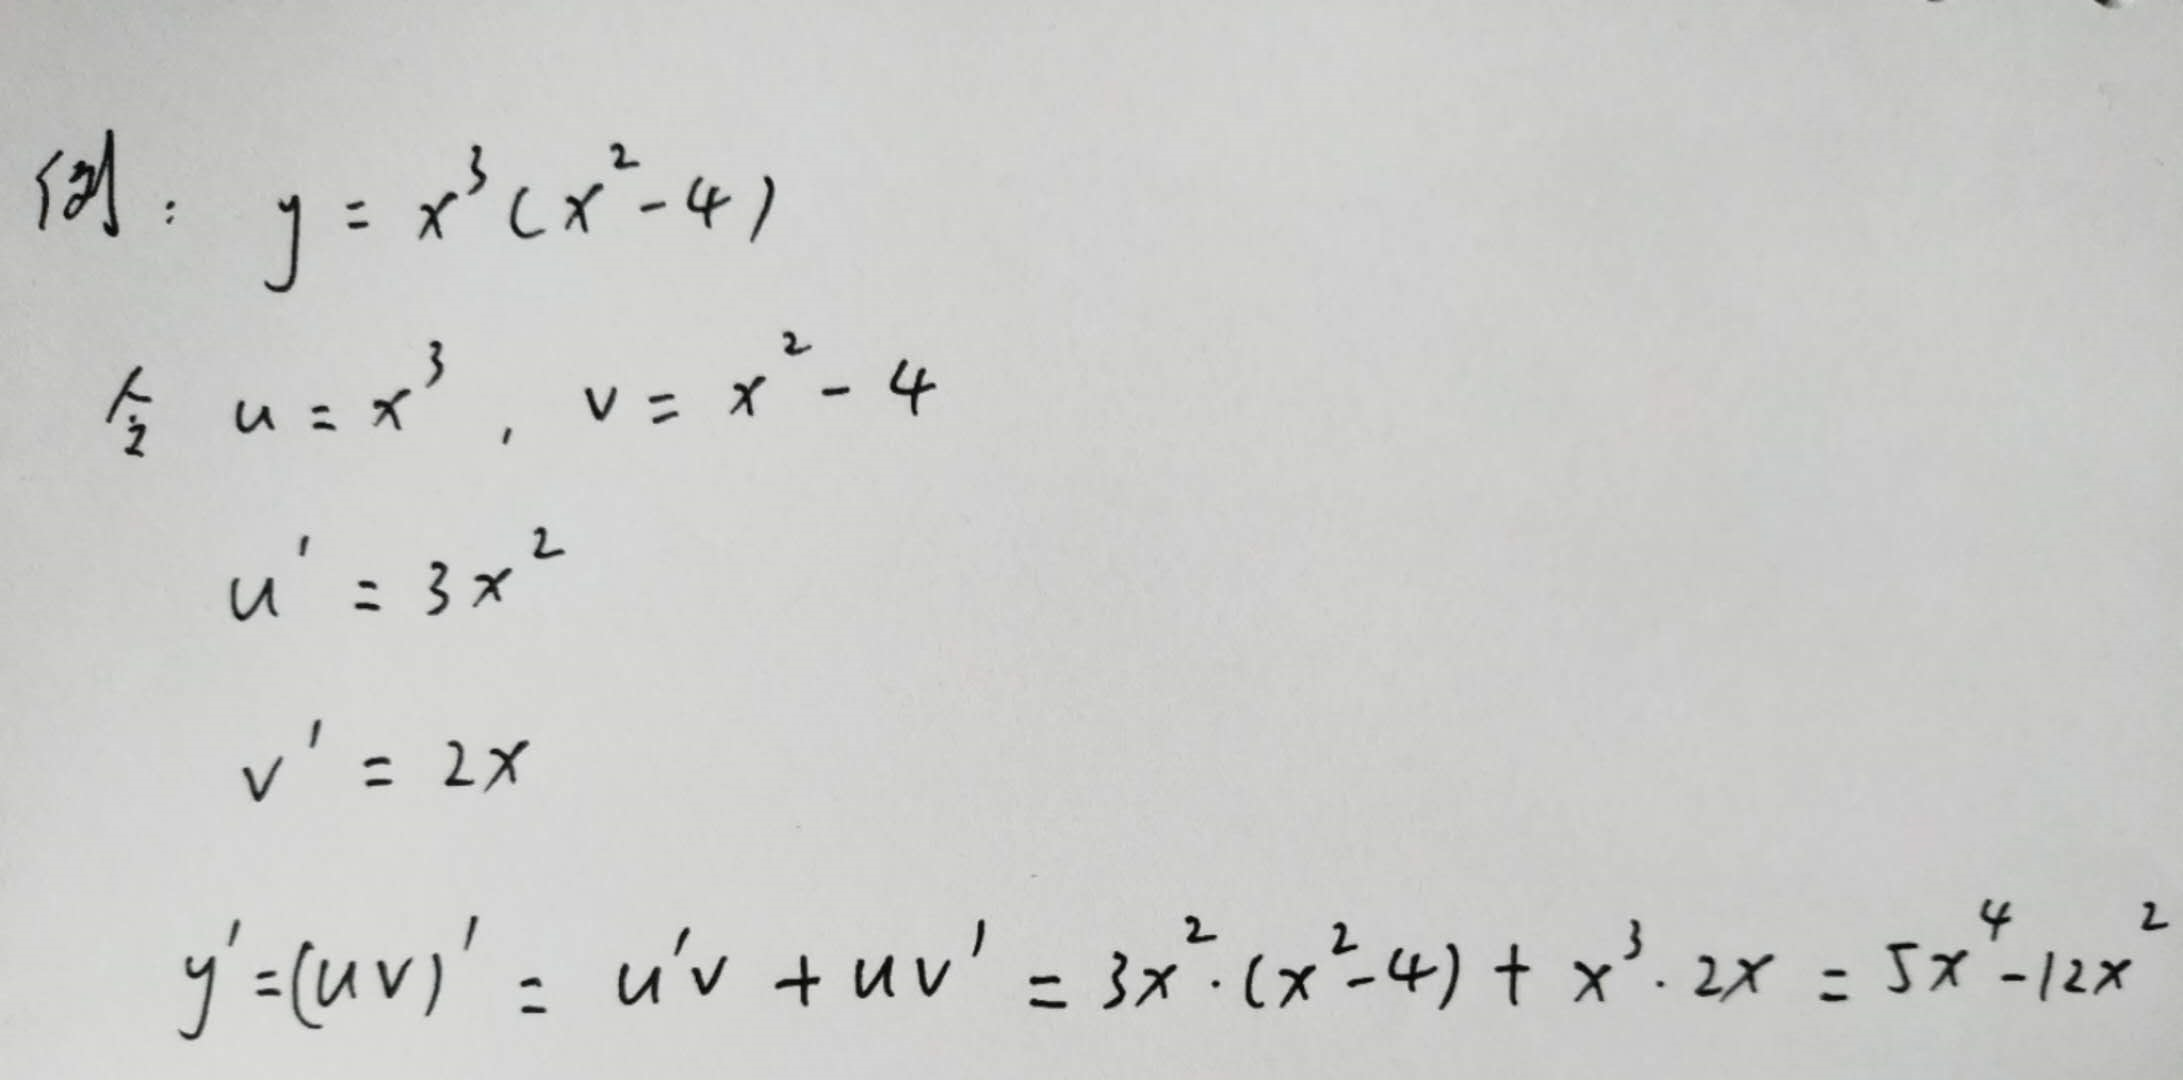 例：y = x³(x²-4)
令 u = x³, v = x²-4
u' = 3x²
v' = 2x
y'=(uv)' = u'v + uv' = 3x²·(x²-4) + x³·2x = 5x⁴-12x²